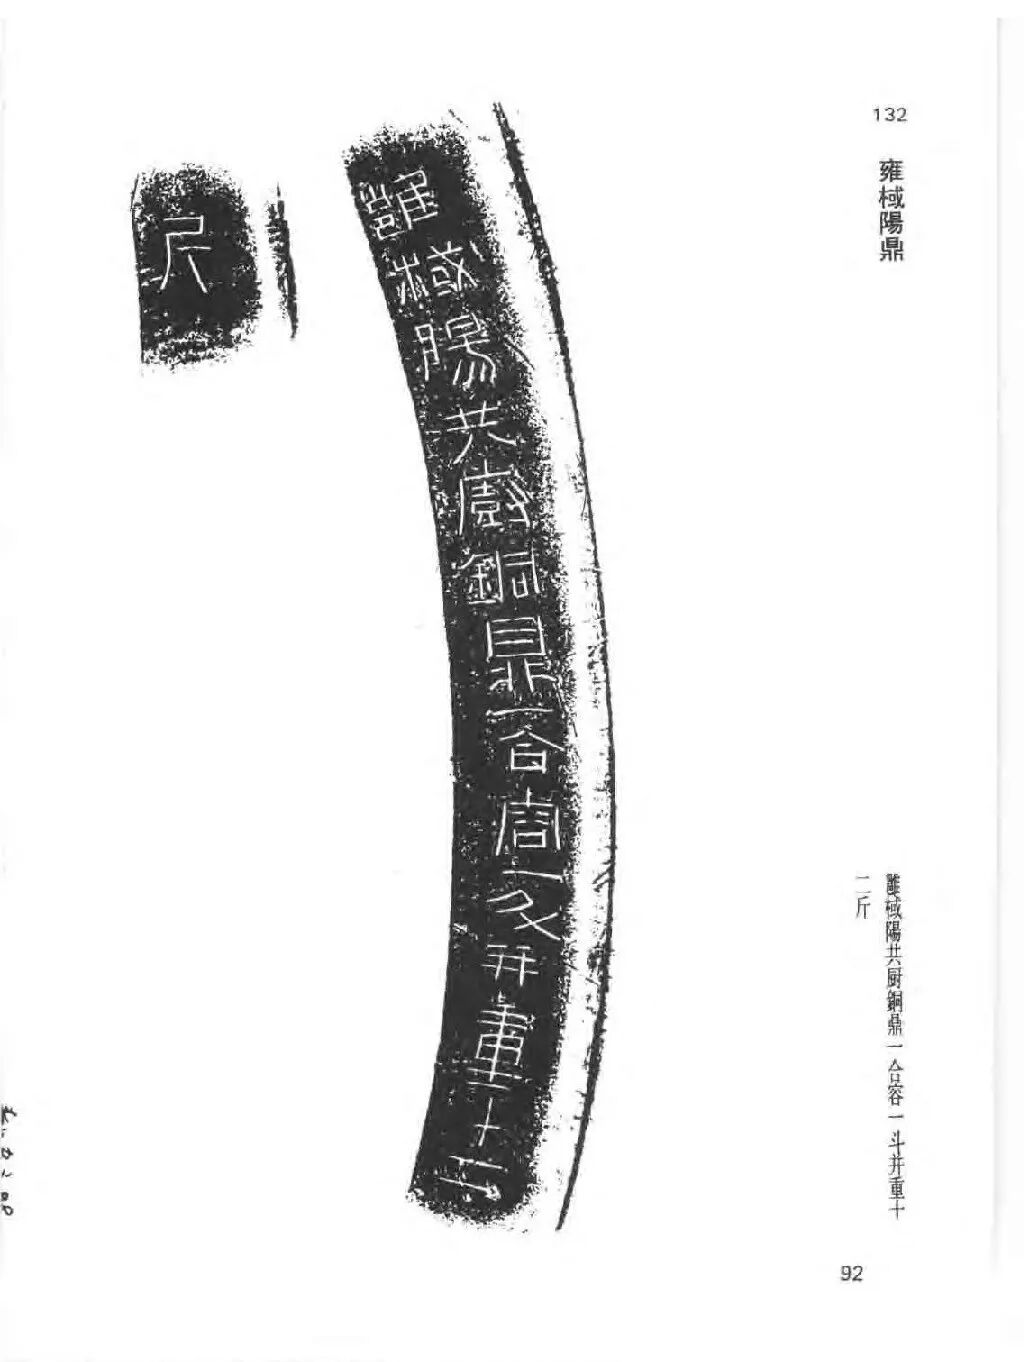 132
雍棫陽鼎
雝棫陽共厨銅鼎一合容一斗并重十
二斤
雝棫陽共廚銅鼎一合容一斗并重十二
斤
92